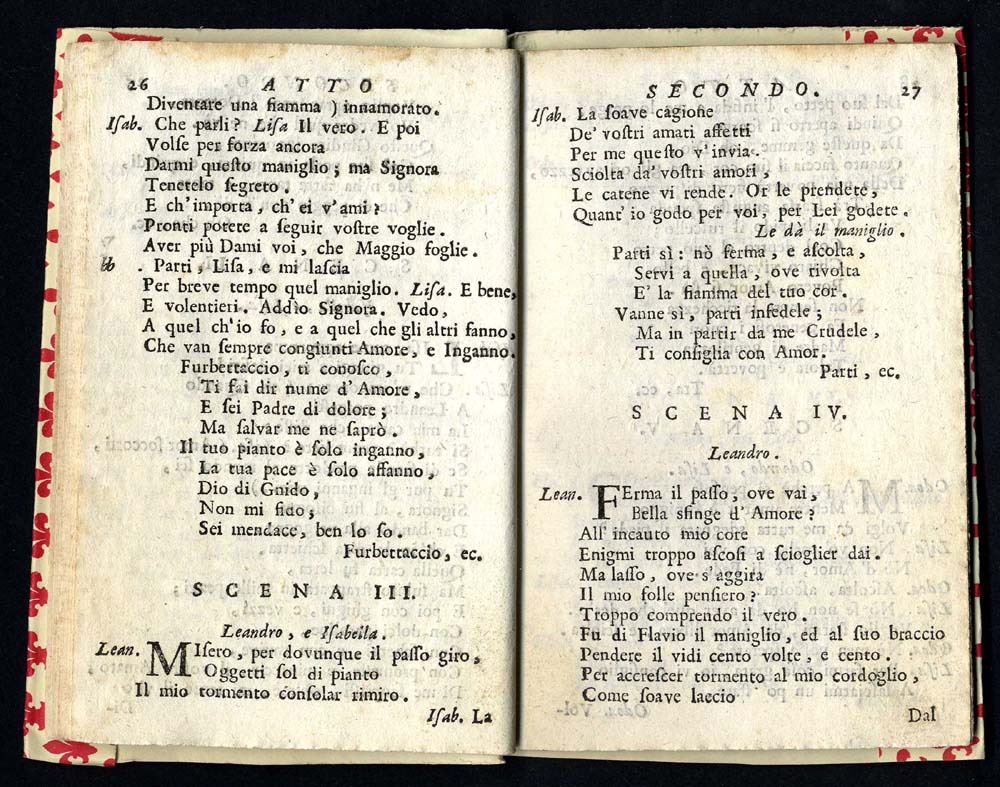 26 ATTO
Diventare una fiamma ) innamorato.
Isab. Che parli? Lisa Il vero. E poi
Volse per forza ancora
Darmi questo maniglio; ma Signora
Tenetelo segreto.
E ch' importa, ch' ei v' ami?
Pronti potete a seguir vostre voglie.
Aver più Dami voi, che Maggio foglie.
bb . Parti, Lisa, e mi lascia
Per breve tempo quel maniglio. Lisa. E bene,
E volentieri. Addio Signora. Vedo,
A quel ch'io fo, e a quel che gli altri fanno,
Che van sempre congiunti Amore, e Inganno.
Furbettaccio, ti conosco,
Ti fai dir nume d' Amore,
E sei Padre di dolore;
Ma salvar me ne saprò.
Il tuo pianto è solo inganno,
La tua pace è solo affanno,
Dio di Gnido,
Non mi fido;
Sei mendace, ben lo so.
Furbettaccio, ec.
SCENA III.
Leandro, e Isabella.
Lean. MIsero, per dovunque il passo giro,
Oggetti sol di pianto
Il mio tormento consolar rimiro.
Isab. La
SECONDO. 27
Isab. La soave cagione
De' vostri amati affetti
Per me questo v' invia.
Sciolta da' vostri amori,
Le catene vi rende. Or le prendete,
Quant' io godo per voi, per Lei godete.
Le dà il maniglio.
Parti sì: nò ferma, e ascolta,
Servi a quella, ove rivolta
E' la fiamma del tuo cor.
Vanne sì, parti infedele;
Ma in partir da me Crudele,
Ti consiglia con Amor.
Parti, ec.
SCENA IV.
Leandro.
Lean. FErma il passo, ove vai,
Bella sfinge d' Amore?
All' incauto mio core
Enigmi troppo ascosi a scioglier dai.
Ma lasso, ove s'aggira
Il mio folle pensiero?
Troppo comprendo il vero.
Fu di Flavio il maniglio, ed al suo braccio
Pendere il vidi cento volte, e cento.
Per accrescer tormento al mio cordoglio,
Come soave laccio
Dal